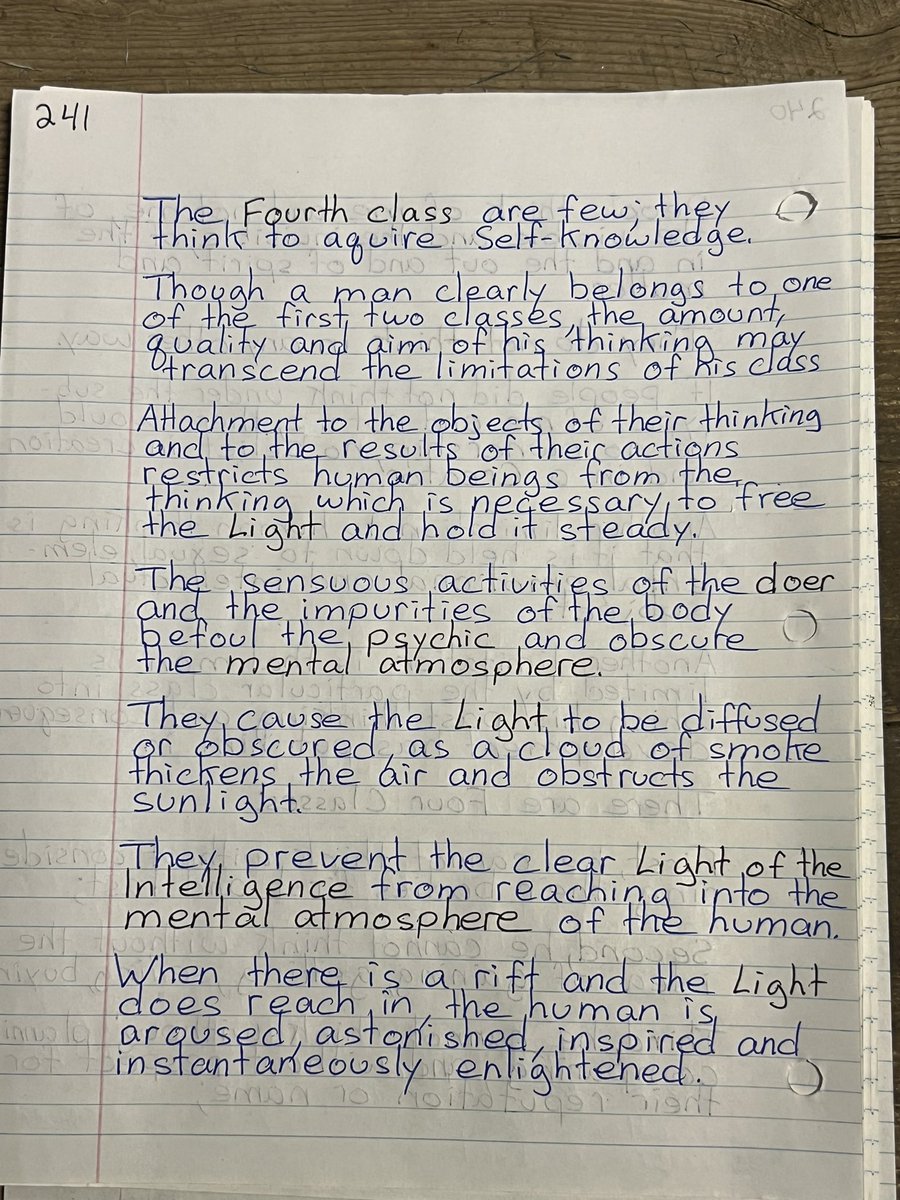 241
The Fourth class are few; they
think to aquire Self-Knowledge.
Though a man clearly belongs to one
of the first two classes, the amount,
quality and aim of his thinking may
transcend the limitations of his class
Attachment to the objects of their thinking
and to the results of their actions
restricts human beings from the
thinking which is necessary to free
the Light and hold it steady.
The sensuous activities of the doer
and the impurities of the body
befoul the psychic and obscure
the mental atmosphere.
They cause the Light to be diffused
or obscured, as a cloud of smoke
thickens the air and obstructs the
sunlight.
They prevent the clear Light of the
Intelligence from reaching into the
mental atmosphere of the human.
When there is a rift and the Light
does reach in, the human is
aroused, astonished, inspired and
instantaneously enlightened.